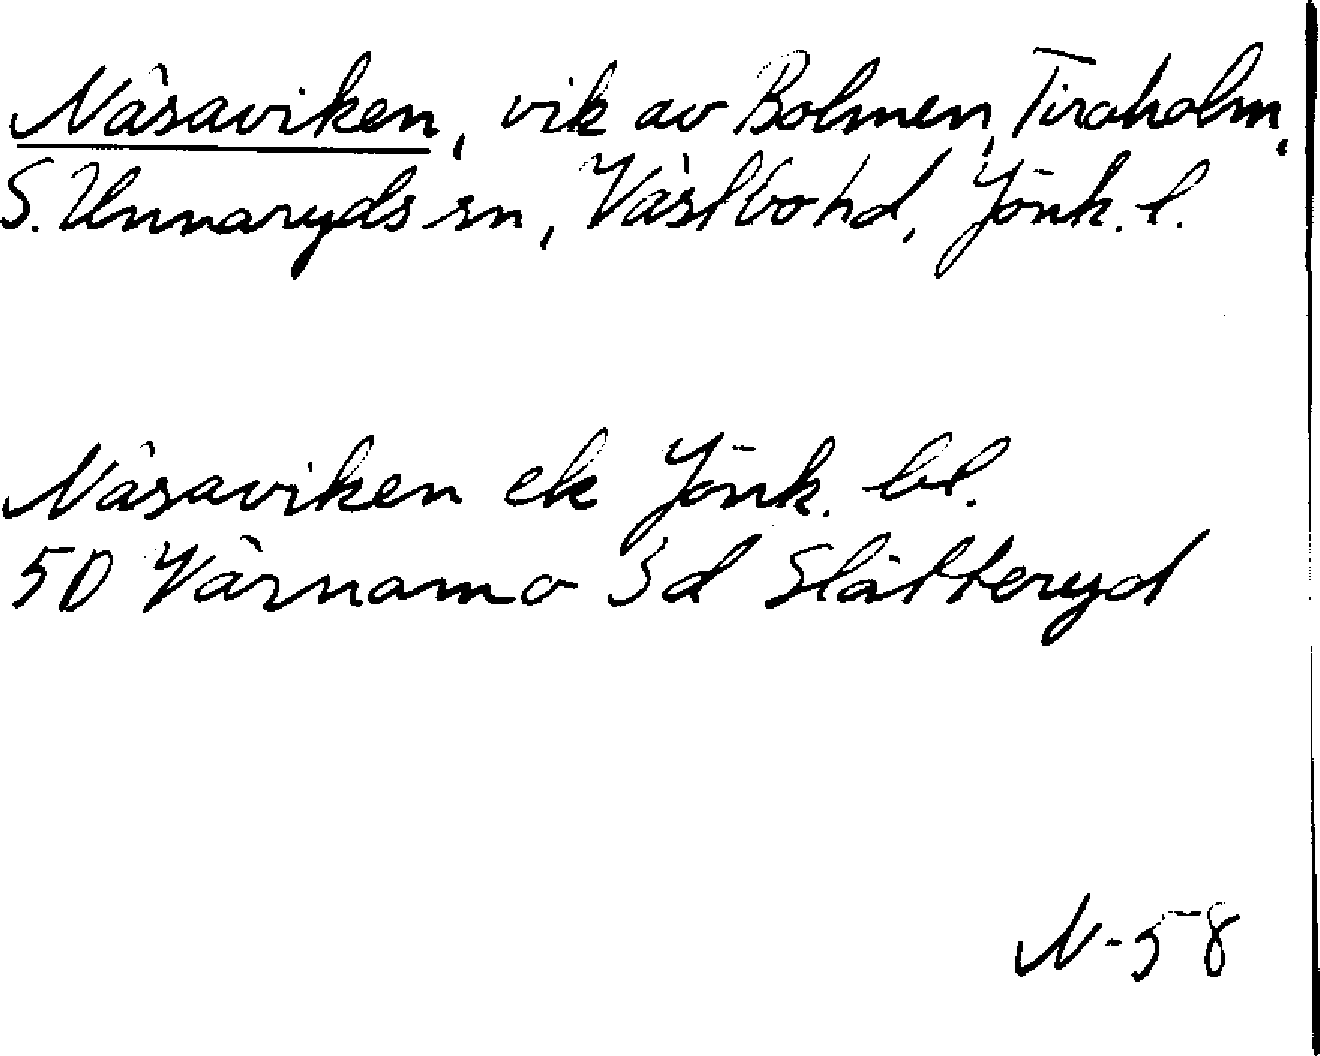 Näsaviken, vik av Bolmen, Tiraholm,
S. Unnaryds sn, Västbo hd, Jönk. l.
Näsaviken ek Jönk. bl.
50 Värnamo 3d Slätteryd
N-58